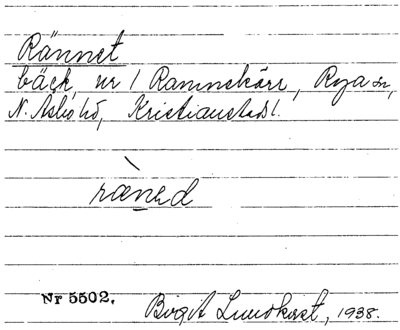 Rännet
bäck, nr 1 Ramnekärr, Rya sn,
N. Åsbo hd, Kristianstads l.
rànɛd
Nr 5502.
Birgit Lundkvist, 1938.